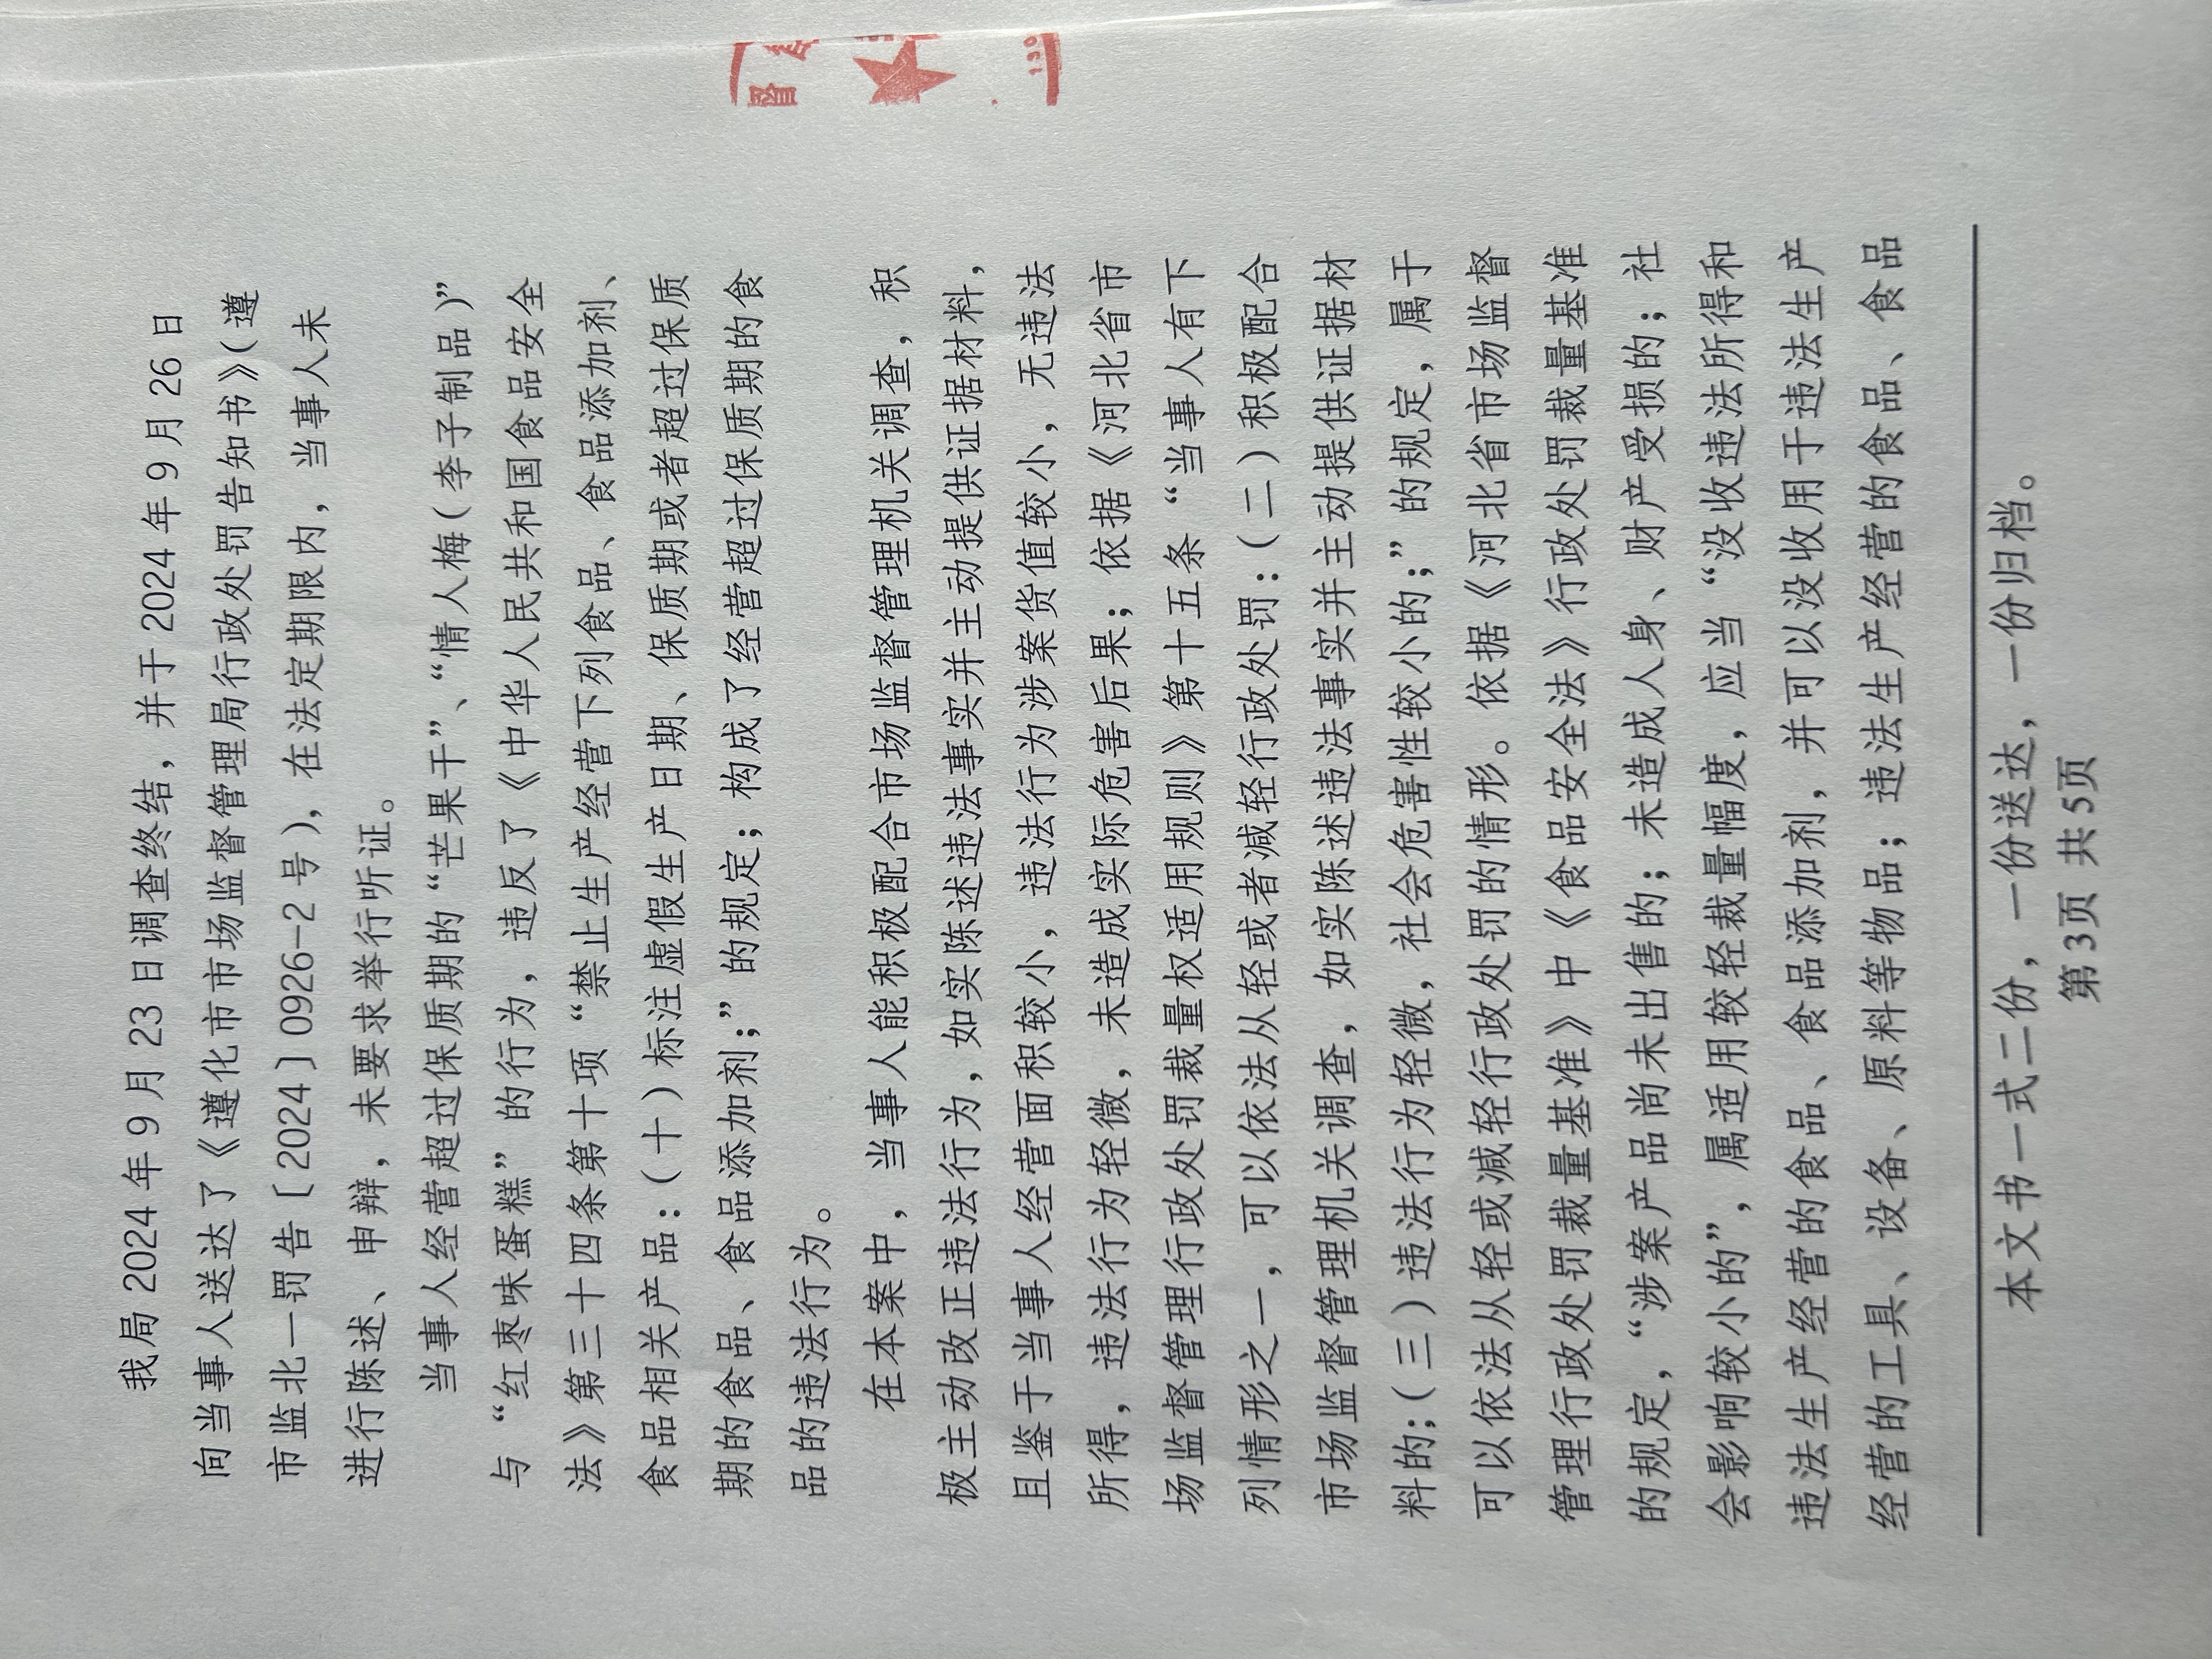 我局2024年9月23日调查终结，并于2024年9月26日
向当事人送达了《遵化市市场监督管理局行政处罚告知书》（遵
市监北一罚告〔2024〕0926-2号），在法定期限内，当事人未
进行陈述、申辩，未要求举行听证。
当事人经营超过保质期的“芒果干”、“情人梅（李子制品）”
与“红枣味蛋糕”的行为，违反了《中华人民共和国食品安全
法》第三十四条第十项“禁止生产经营下列食品、食品添加剂、
食品相关产品：（十）标注虚假生产日期、保质期或者超过保质
期的食品、食品添加剂；”的规定；构成了经营超过保质期的食
品的违法行为。
在本案中，当事人能积极配合市场监督管理机关调查，积
极主动改正违法行为，如实陈述违法事实并主动提供证据材料，
且鉴于当事人经营面积较小，违法行为涉案货值较小，无违法
所得，违法行为轻微，未造成实际危害后果；依据《河北省市
场监督管理行政处罚裁量权适用规则》第十五条“当事人有下
列情形之一，可以依法从轻或者减轻行政处罚：（二）积极配合
市场监督管理机关调查，如实陈述违法事实并主动提供证据材
料的；（三）违法行为轻微，社会危害性较小的；”的规定，属于
可以依法从轻或减轻行政处罚的情形。依据《河北省市场监督
管理行政处罚裁量基准》中《食品安全法》行政处罚裁量基准
的规定，“涉案产品尚未出售的；未造成人身、财产受损的；社
会影响较小的”，属适用较轻裁量幅度，应当“没收违法所得和
违法生产经营的食品、食品添加剂，并可以没收用于违法生产
经营的工具、设备、原料等物品；违法生产经营的食品、食品
本文书一式二份，一份送达，一份归档。
第3页 共5页
督
130